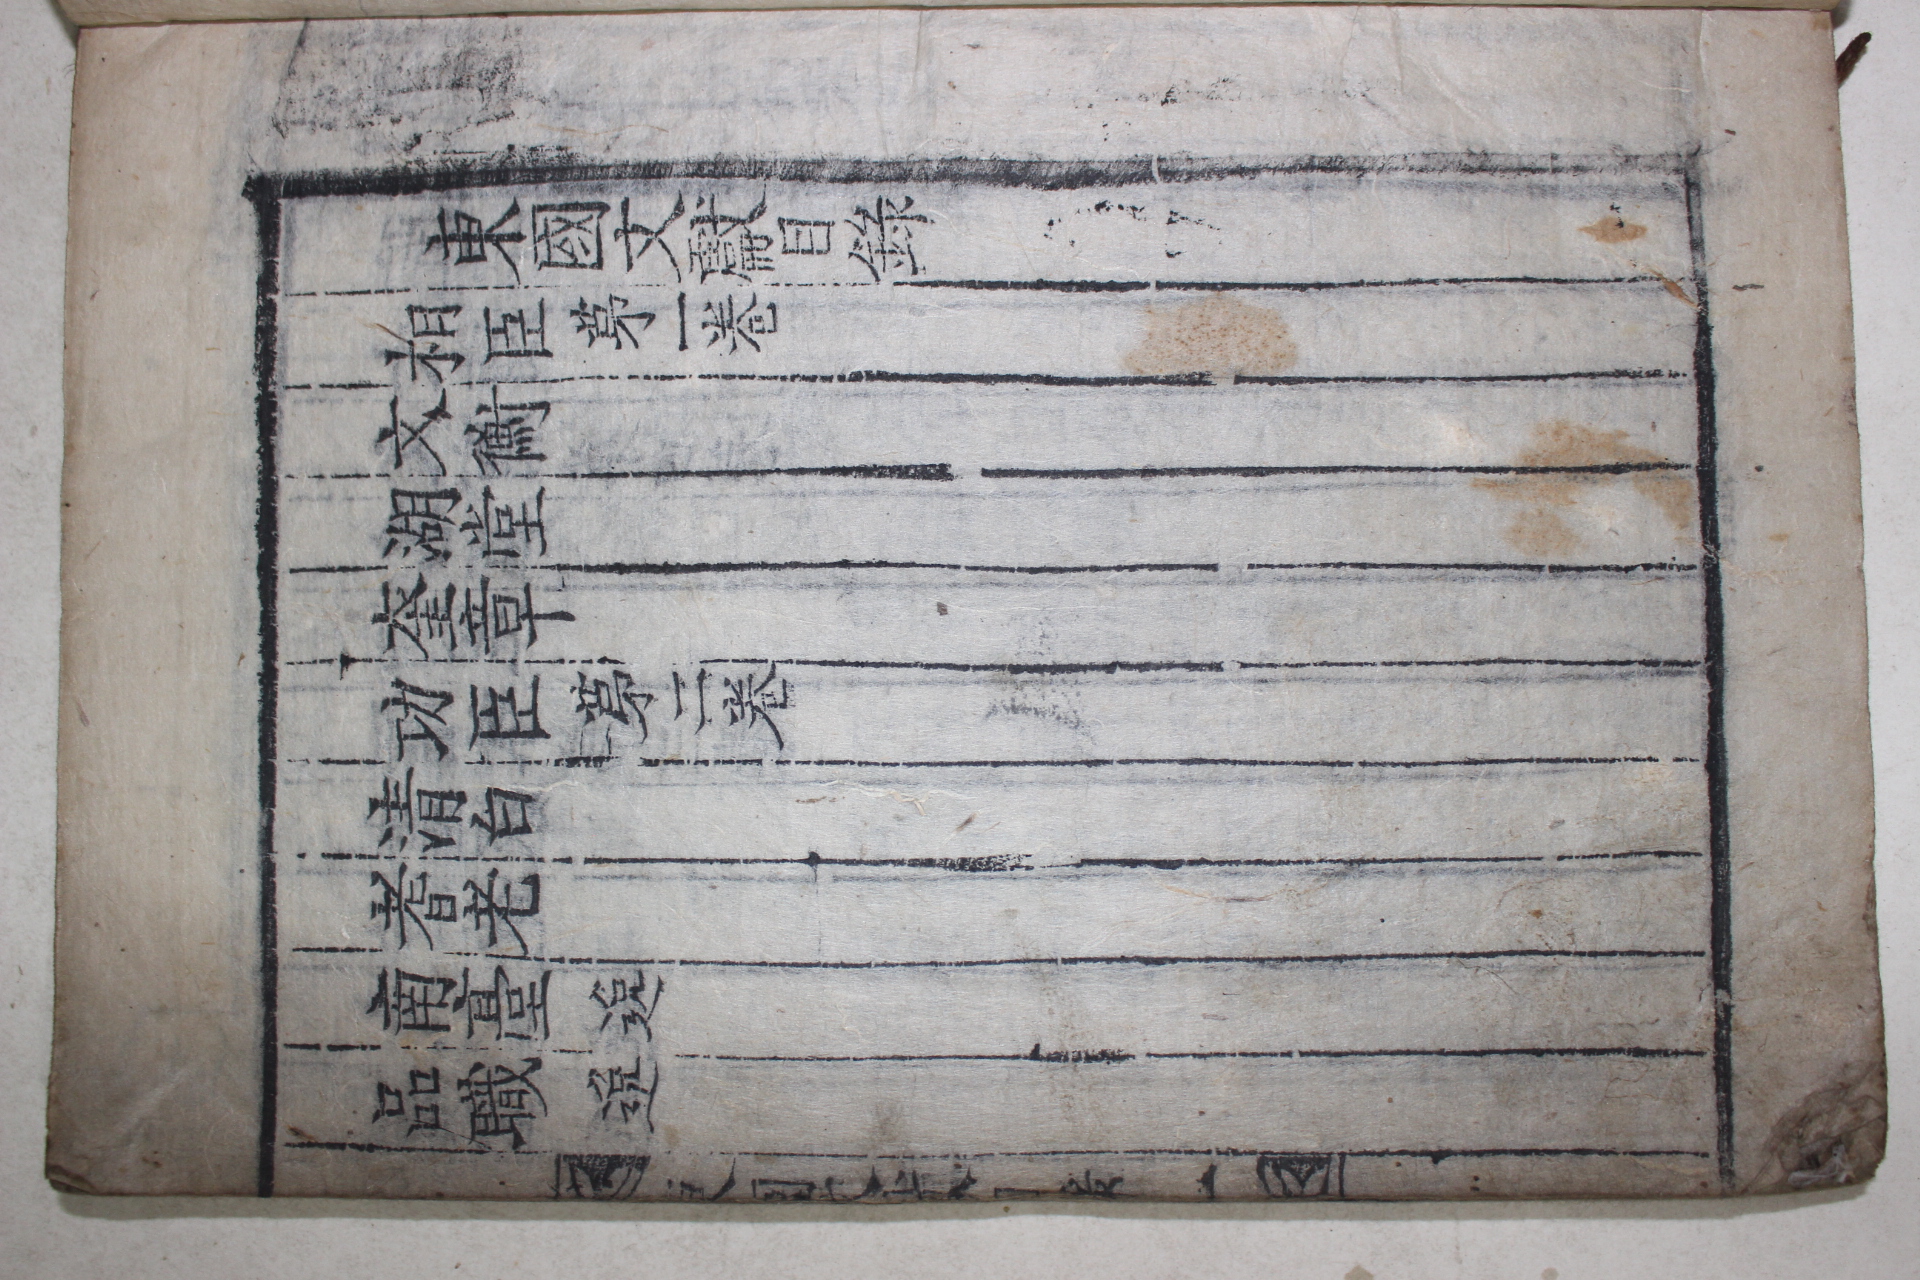 東國文獻目錄
相臣 第一卷
文衡
湖堂
奎章
功臣 第二卷
淸白
耆老
南臺
品職